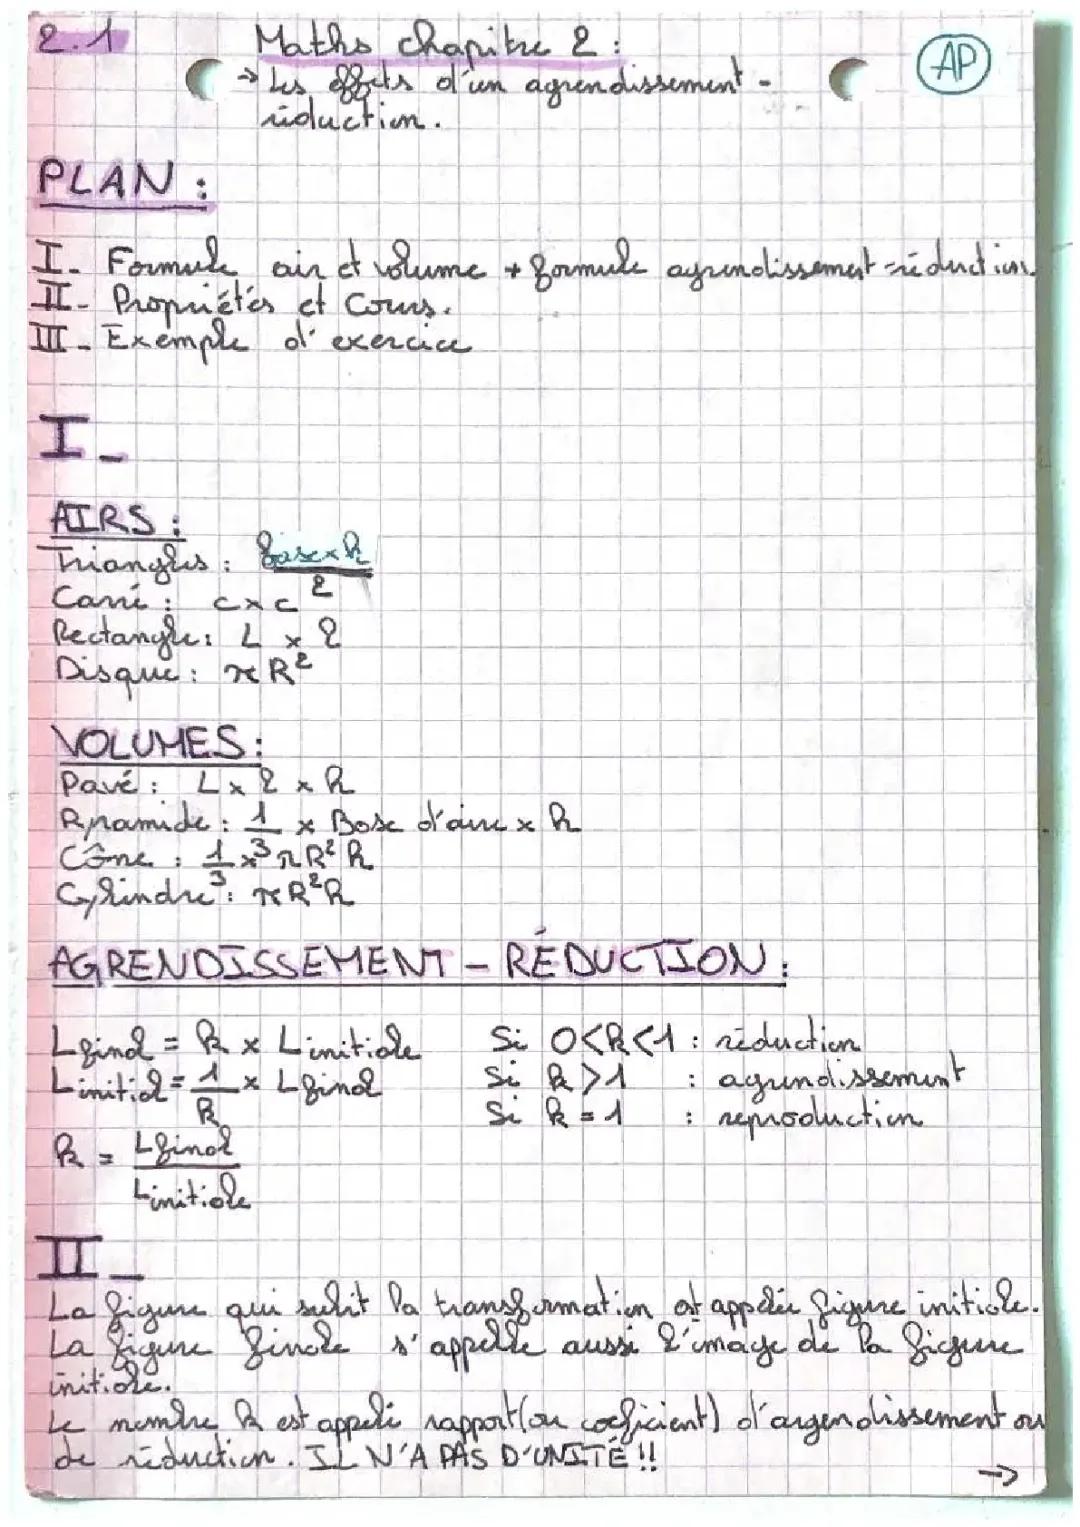 2.1 Maths chapitre 2 :
AP
→ Les effets d'un agrendissement -
réduction.
PLAN :
I- Formule air et volume + formule agrendissement-réduction.
II- Propriétés et Cours.
III- Exemple d'exercice
I-
AIRS :
Triangles : base×h / 2
Carré : c×c
Rectangle : L × l
Disque : πR²
VOLUMES :
Pavé : L × l × h
Pyramide : 1/3 × Base d'aire × h
Cône : 1/3 × πR²h
Cylindre : πR²h
AGRENDISSEMENT - RÉDUCTION :
Lfinal = k × Linitiale Si 0<k<1 : réduction
Linitial = 1/k × Lfinal Si k>1 : agrendissement
Si k=1 : reproduction
k = Lfinal / Linitiale
II-
La figure qui subit la transformation est appelée figure initiale.
La figure finale s'appelle aussi l'image de la figure
initiale.
Le nombre k est appelé rapport (ou coeficient) d'argendissement ou
de réduction. IL N'A PAS D'UNITÉ !!
→